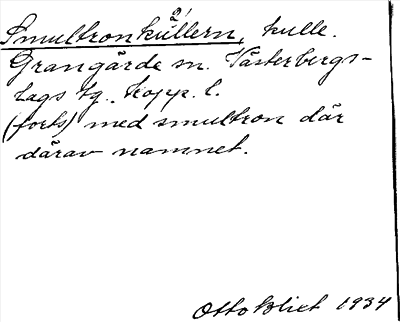 Smultronkullern, kulle.
Grangärde sn. Västerbergs-
lags tg. Kopp. l.
(forts) med smultron där
därav namnet.
Otto Blixt 1934